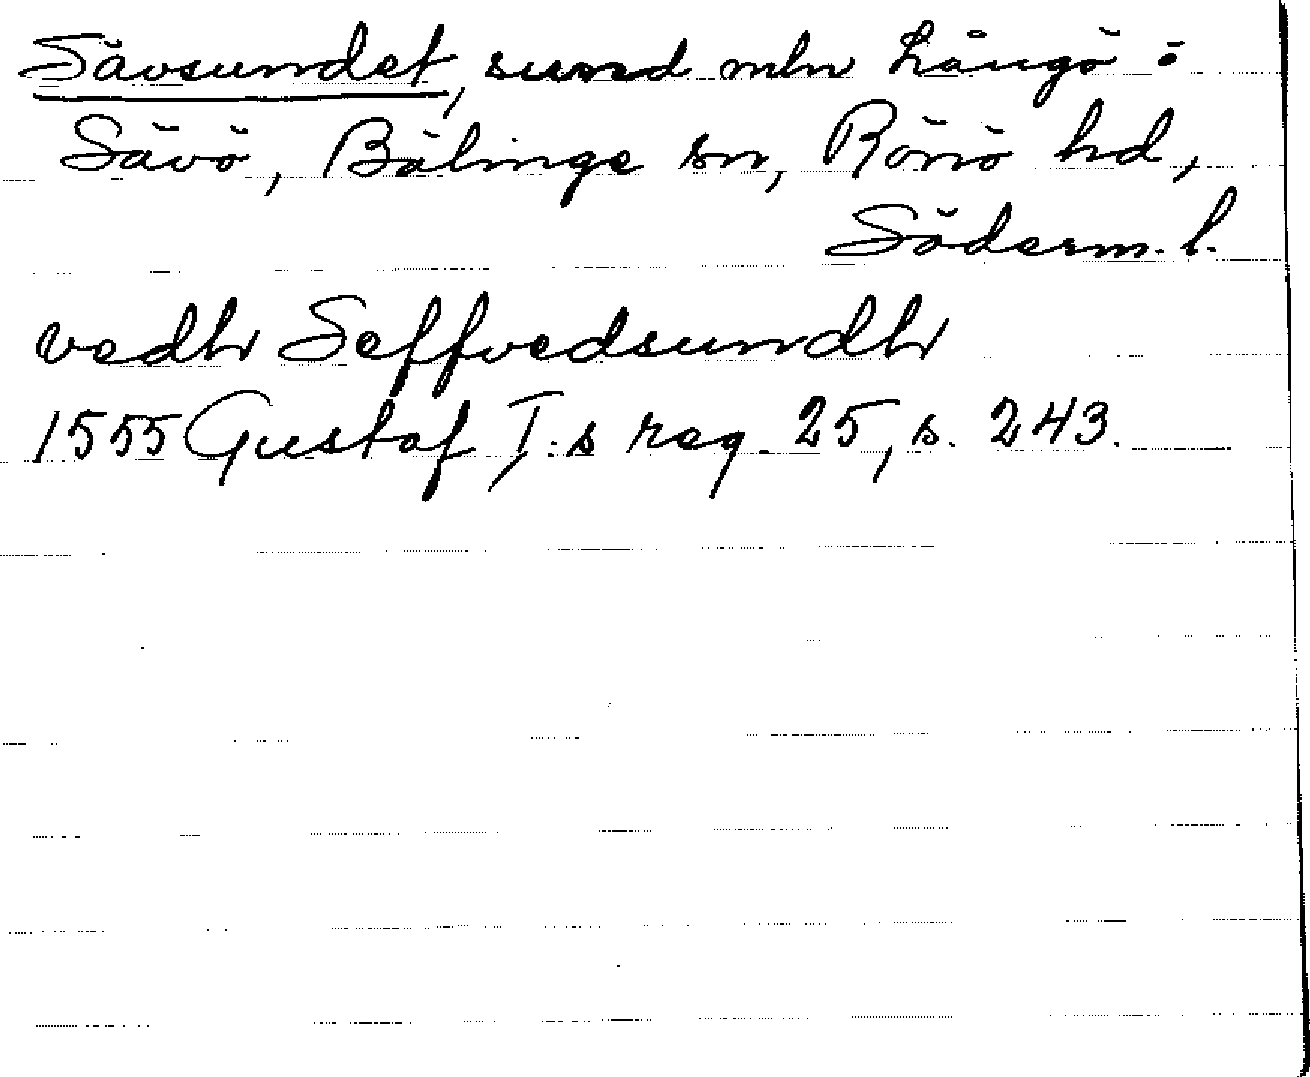 Sävsundet, sund mln Långö o
Sävö, Bälinge sn, Rönö hd,
Söderm. l.
vedh Seffvedsundh
1555 Gustaf I:s reg. 25, s. 243.